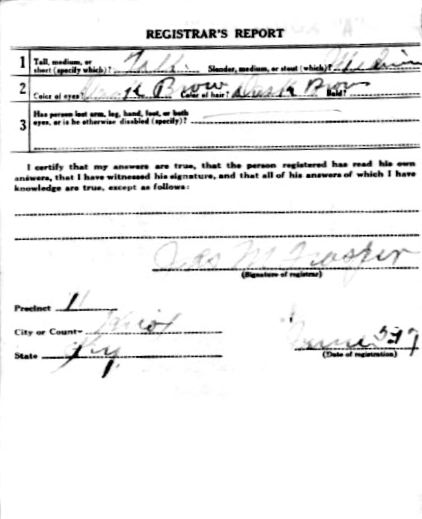 REGISTRAR'S REPORT
1 Tall, medium, or short (specify which)? Tall Slender, medium, or stout (which)? Medium
2 Color of eyes? Dark Brow Color of hair? Dark Brow Bald?
3 Has person lost arm, leg, hand, foot, or both eyes, or is he otherwise disabled (specify)?
I certify that my answers are true, that the person registered has read his own
answers, that I have witnessed his signature, and that all of his answers of which I have
knowledge are true, except as follows:
M
(Signature of registrar)
Precinct 11
City or County Knox
State Ky.
June 5-17
(Date of registration)